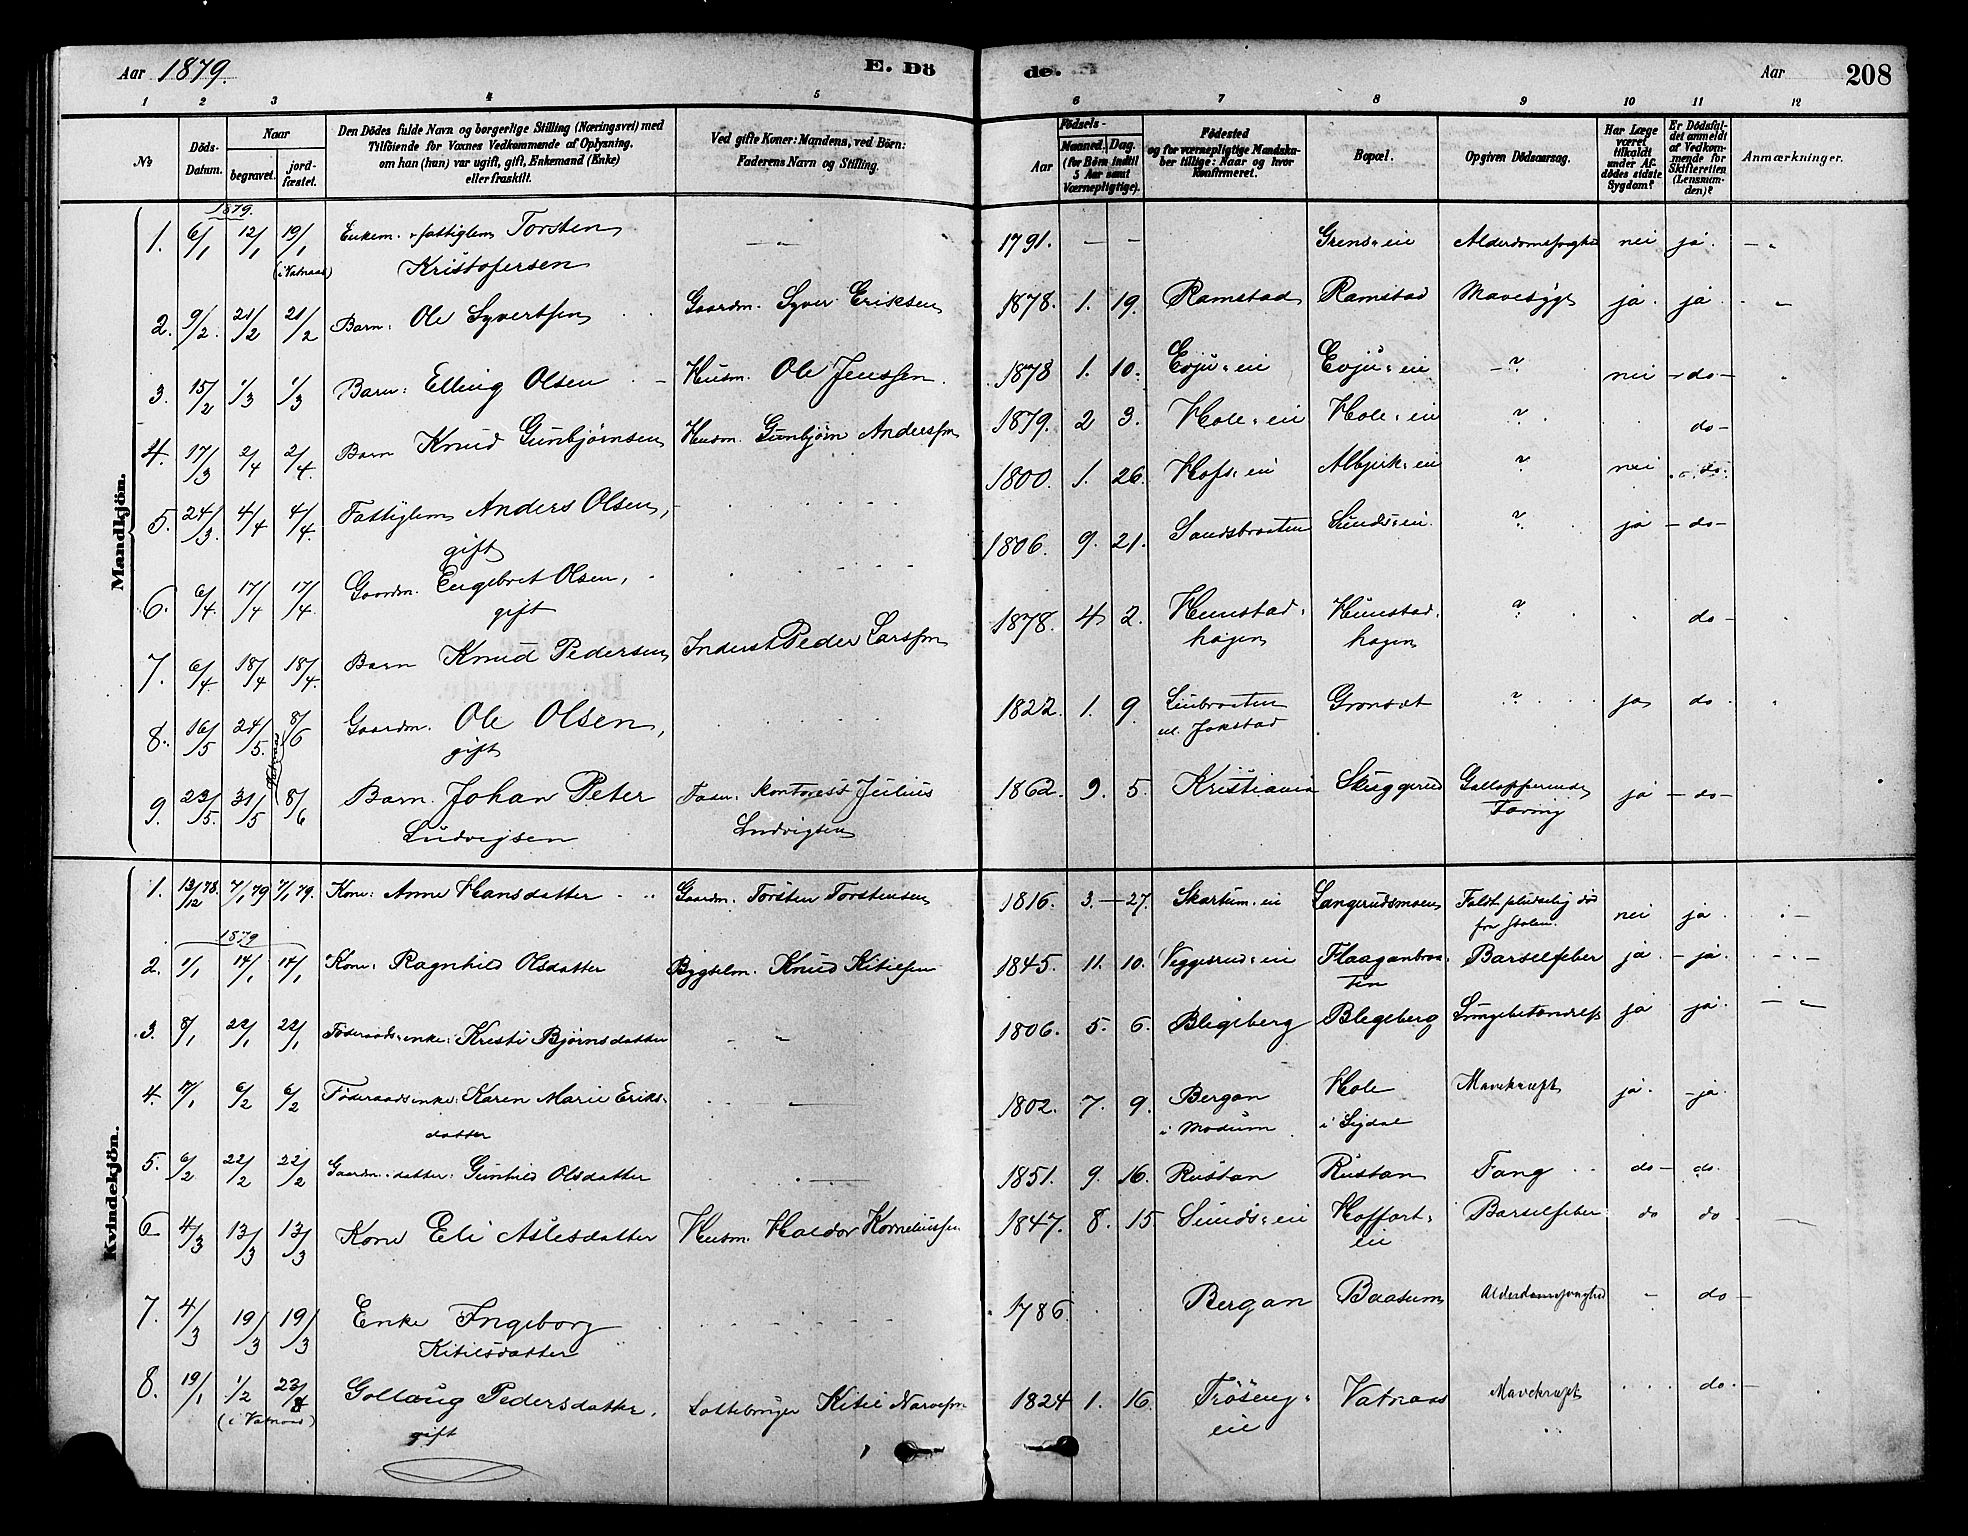 Aar 1879. E. Dö de. Aar 208
1 2 3 4 5 6 7 8 9 10 11 12
No
Döds-Datum.
Naar
begravet.
jordfæstet.
Den Dödes fulde Navn og borgerlige Stilling (Næringsvei) med
Tilföiende for Voxnes Vedkommende af Oplysning,
om han (hun) var ugift, gift, Enkemand (Enke)
eller fraskilt.
Ved gifte Koner: Mandens, ved Börn:
Faderens Navn og Stilling.
Födsels-
Aar
Maaned. Dag.
(for Börn indtil
5 Aar samt
Værnepligtige).
Födested
og for værnepligtige Mandskaber tillige: Naar og hvor
Konfirmeret.
Bopæl.
Opgiven Dödsaarsag.
Har Læge
været
tilkaldt
under Afdödes sidste
Sygdom?
Er Dödsfaldet anmeldt
af Vedkommende for
Skifteretten
(Lensmanden)?
Anmærkninger.
Mandkjön.
1879.
1. 6/1 12/1 19/1 Enkem. fattiglem Torsten 1791. – – Grens-eie nei ja.
(i Vatnaas) Kristofersen
2. 9/2. 21/2 21/2 Barn: Ole Syvertsen Gaardm. Syver Eriksen 1878. 1. 19. Ramstad Ramstad Mavesyge ja. ja
3. 15/2 1/3 1/3 Barn: Elling Olsen Husm. Ole Jenssen. 1878 1. 10. Evju-eie Evju-eie – ? nei – do –
4. 17/3 2/4 2/4. Barn Knud Gunbjørnsen Husm. Gunbjørn Anderssen 1879. 2 3. Hole-eie Hole-eie ? do –
5. 24/3. 4/4 4/4. Fattiglem Anders Olsen, 1800. 1. 26. Hofs-eie ? nei do.
gift
6. 6/4. 17/4 17/4. Gaardm. Engebret Olsen, 1806. 9. 21. Sandsbraaten Sunds-eie. ? ja – do –
gift
7. 6/4 18/4 18/4. Barn Knud Pedersen Inderst Peder Larssen 1878. 4 2. Hunstad- Hunstad- ? do –
hagen hagen
8. 16/5 24/5. 8/6 Gaardm. Ole Olsen, 1822. 1. 9. ? ja do.
gift Jokstad
Vatnaas
9. 23/5. 31/5 8/6 Barn. Johan Peter Fader: Kontorist Julius 1862. 9. 5. Kristiania Skuggerud Galopperende ja – do –
Ludvigsen Ludvigsen Tæring
Kvindekjön.
1. 13/12 78. 7/1 79 7/1 79. Kone: Anne Hansdatter Gaardm. Torsten Torstensen 1816. 3. – 27. Skartum-eie Langerudsmoen Faldt pludselig død nei ja.
fra Stolen.
1879
2. 1/1 14/1 14/1. Kone: Ragnhild Olsdatter Bygselm. Knud Kittelsen 1845. 11. 10. Veggesrud-eie Flaaganbraa- Barselfeber ja. – ja.
ten
3. 8/1 22/1 22/1 Føderaadsenke: Kristi Bjørnsdatter 1806. 5. 6. Blegeberg Blegeberg Lungebetændelse ja ja.
4. 7/1 6/2 6/2 Føderaadsenke: Karen Marie Eriks- 1802. 7. 9. Bergan Hole Mavekræft ja. – ja.
datter i Modum i Sigdal
5. 6/2 22/2 22/2 Gaardm. datter: Gunhild Olsdatter 1851. 9. 16. Rustan Rustan Tæng do – do.
6 4/3 13/3 13/3 Kone Eli Aslesdatter Husm. Haldor Korneliussen 1847. 8. 15. Sunds-eie Hoffart- Barselfeber do do
eie
7. 4/3 19/3 19/3 Enke Ingeborg 1786. Bergan Baasum Alderdomssvaghed – do –
Kitilsdatter
8. 19/1 1/2 23/4 Gollaug Pedersdatter, Kitil Narvesen 1824 1. 16. Trøseng- Vatnaas Mavekræft do. –
(i Vatnaas) gift eie